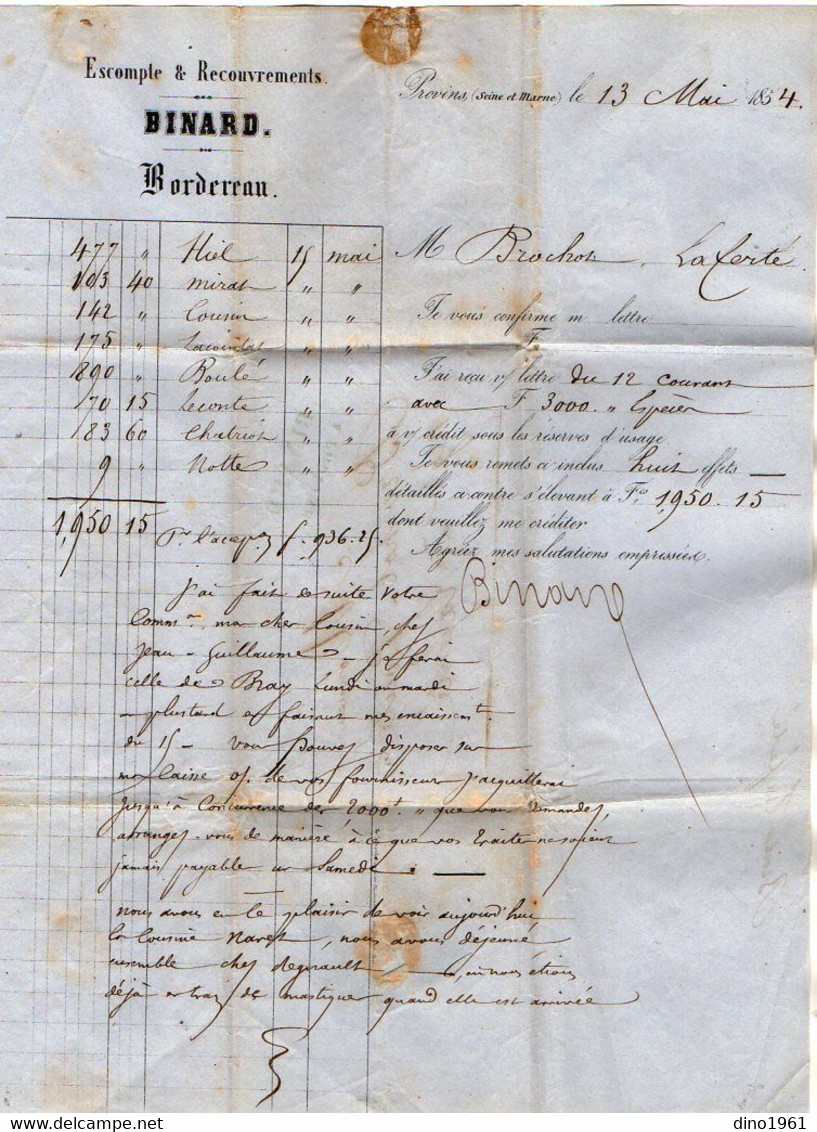 Escompte & Recouvrements.
BINARD.
Bordereau.
Provins, (Seine et Marne) le 13 Mai 1854.
M Brochot, La ferté
477 " Hiel 15 mai
103 40 Mirat " "
142 " Cousin " "
175 " " "
890 " Boulé " "
70 15 Leconte " "
83 60 Chatriot " "
9 " Notte " "
1,950 15
Je vous confirme m lettre
F
J'ai reçu v/ lettre du 12 courant
avec F 3000. " Espèces
à v/ crédit sous les réserves d'usage
Je vous remets ci-inclus huit effets
détaillés ci contre s'élevant à Fcs 1,950. 15
dont veuillez me créditer
Agréez mes salutations empressées.
Binard
Pr l'acep f. 936.25
j'ai fait de suite votre
Commson, mon cher Cousin, chez
Jean-Guillaume - je ferai
celle de Bray Lundi ou mardi
plustard en faisant mes encaissemts
du 15 - vous pouvez disposer sur
ma Caisse of. de vos fournisseurs j'acquitterai
jusqu'à Concurrence des 2000f. " que vous demandez,
arrangez-vous de manière à ce que vos traites ne soient
jamais payable un Samedi.
nous avons eu le plaisir de voir aujourd'hui,
la Cousine, nous avons déjeuné
ensemble chez Regnault, nous étions
déjà en train de mastiquer quand elle est arrivée
dino1961